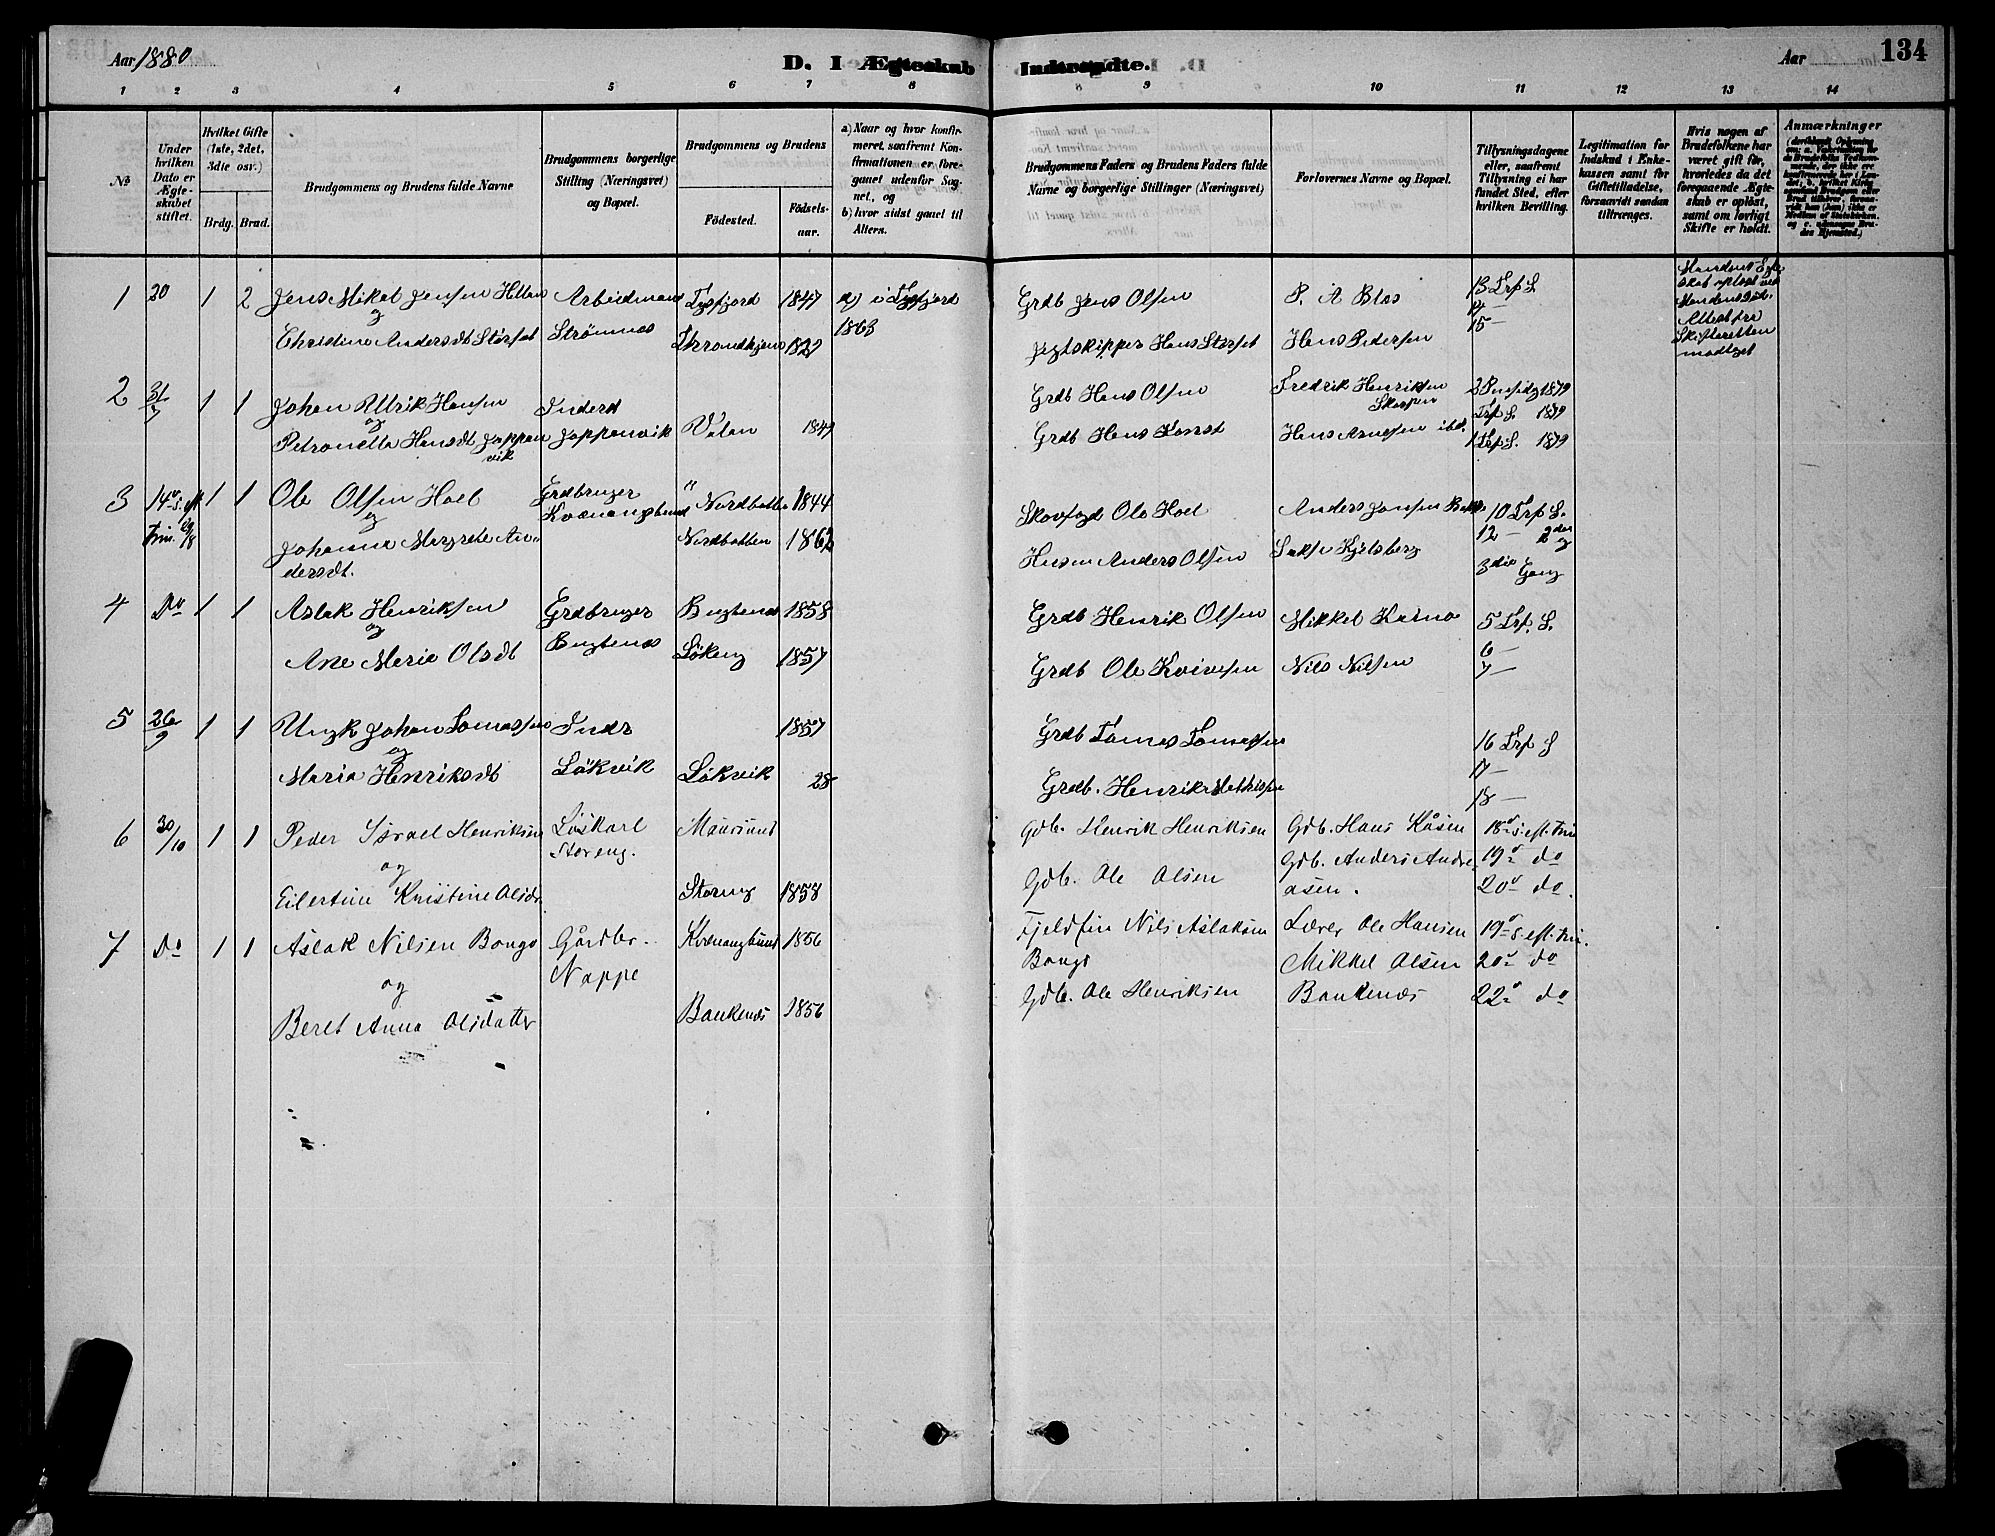 Aar 1880
D. I Ægteskab Indtraadte.
Aar
134
1 2 3 4 5 6 7 8 9 10 11 12 13 14
No
Under hvilken Dato er Ægteskabet stiftet.
Hvilket Gifte (1ste, 2det, 3die osv.)
Brdg. Brud.
Brudgommens og Brudens fulde Navne
Brudgommens borgerlige Stilling (Næringsvei) og Bopæl.
Brudgommens og Brudens
Fødested.
Fødsels-aar.
a) Naar og hvor konfirmeret, saafremt Konfirmationen er foregaaet udenfor Sognet, og
b) hvor sidst gaaet til Alters.
Brudgommens Faders og Brudens Faders fulde Navne og borgerlige Stillinger (Næringsvei)
Forlovernes Navne og Bopæl.
Tillysningsdagene eller, saafremt Tillysning ei har fundet Sted, efter hvilken Bevilling.
Legitimation for Indskud i Enkekassen samt for Giftetilladelse, forsaavidt saadan tiltrænges.
Hvis nogen af Brudefolkene har været gift før, hvorledes da det foregaaende Ægteskab er opløst, samt om lovligt Skifte er holdt.
Anmærkninger
1 20 1 2 Jens Mikel Jensen
og
Arbeidmand Tysfjord 1847 a) i Tysfjord
1863
Christine Andersdt Storset Strømnes Throndhjem
Grdb Jens Olsen
Jegtskipper Hans Storset
Hans Pedersen
13 Trf S.
14 —
15 —
Skifteretten
modtaget
2 31/7 1 1 Johan Ulrik Hansen
og
Petronella Hansdt Jappen
vik
Inderst
Jappenvik
Grdb Hans Olsen
Grdb Hans
Fredrik Henriksen
Hans Arnesen
1879
Trf S. 1879
1 Trf S. 1879
3 14 s. eft
Trin. 29/8
1 1 Ole Olsen Hoel
og
Johanne Margrete An-
dersdt.
Grdbruger
Kvænangsbund
Nordbotten 1844
Nordbotten 1862
Skovfogd Ole Hoel
Husm Anders Olsen
Anders Jansen
Kjelsberg
10 Trf S.
12 — 2den
og
3die Gang
4 Do 1 1 Aslak Henriksen
og
Ane Marie Olsdt
Grdbruger
Bugtenes
Bugtenes 1858
Løkeng 1857
Grdb Henrik Olsen
Grdb Ole
Mikkel
Nils Nilsen
5 Trf. S.
6 —
7 —
5 26/9 1 1 Johan Tomassen
og
Maria Henriksdt
Inds
Løkvik
1857
Løkvik 28
Grdb Tomas Tomassen
Grdb. Henrik
16 Trf S
17 —
18 —
6 30/10 1 1 Peder Israel Henriksen
og
Eilertine Kristine Olsdr.
Løskarl
Storeng.
Maursund
Storeng 1858
Gdb. Henrik Henriksen
Gdb. Ole Olsen
Gdb. Hans Kåsen
Gdb. Anders Andre-
asen.
18 s. eft. Trin
19 do
20 do.
7 Do 1 1 Aslak Nilsen Bongo
og
Beret Anna Olsdatter
Gårdbr.
Nappe
Kvænangsbund 1856
Baukenæs 1856
Fjeldfin Nils Aslaksen
Bongo
Gdb. Ole Henriksen
Lærer Ole Hansen
Mikkel Olsen
Baukenæs
19 s. eft. Trin.
20 do
22 do